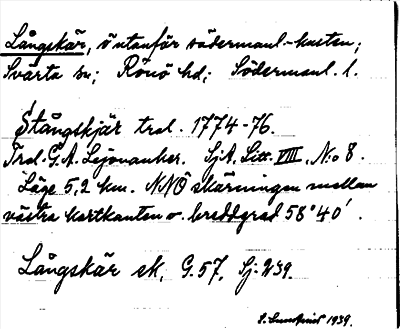 Långskär, ö utanför södermanl-kusten;
Svärta sn; Rönö hd; Södermanl. l.
Stångskjär trol. 1774-76.
Trol. G.A. Lejonanker. SjA. Litt. VIII, N:o 8.
Läge 5,2 km. NNÖ skärningen mellan
västra kartkanten o. breddgrad 58°40′.
Långskär ek. G.57. Sj: 939.
1939.